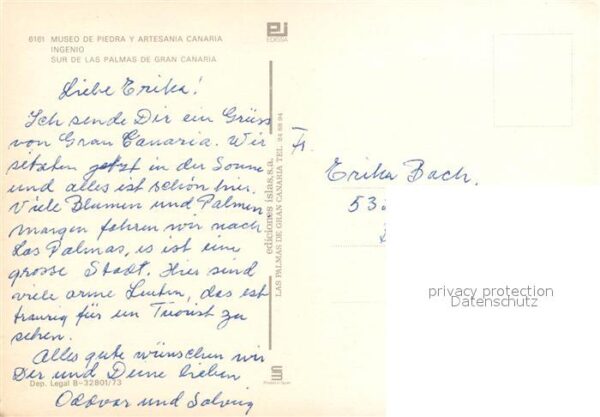 8181 MUSEO DE PIEDRA Y ARTESANIA CANARIA
INGENIO
SUR DE LAS PALMAS DE GRAN CANARIA
Liebe Erika!
Ich sende Dir ein Grüss
von Gran Canaria. Wir
sitzten jetzt in der Sonne
und alles ist schön hier.
Viele Blumen und Palmen
morgen fahren wir nach
Las Palmas, es ist eine
grosse Stadt. Hier sind
viele arme Leuten, das ist
traurig für ein Tuorist zu
sehen.
Alles gute wünschen wir
Dir und Deine lieben
und Solveig
Dep. Legal B-32801/73
ediciones islas, s.a.
LAS PALMAS DE GRAN CANARIA TEL. 24 68 94
Fr.
Erika Bach.
53
privacy protection
Datenschutz